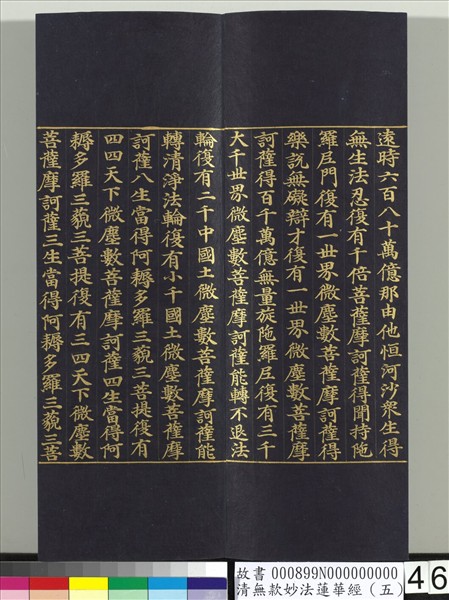 遠時六百八十萬億那由他恒河沙衆生得
無生法忍復有千倍菩薩摩訶薩得聞持陁
羅尼門復有一世界微塵數菩薩摩訶薩得
樂說無礙辯才復有一世界微塵數菩薩摩
訶薩得百千萬億無量旋陁羅尼復有三千
大千世界微塵數菩薩摩訶薩能轉不退法
輪復有二千中國土微塵數菩薩摩訶薩能
轉清淨法輪復有小千國土微塵數菩薩摩
訶薩八生當得阿耨多羅三藐三菩提復有
四四天下微塵數菩薩摩訶薩四生當得阿
耨多羅三藐三菩提復有三四天下微塵數
菩薩摩訶薩三生當得阿耨多羅三藐三菩
故書 000899N000000000
清無款妙法蓮華經（五）
46